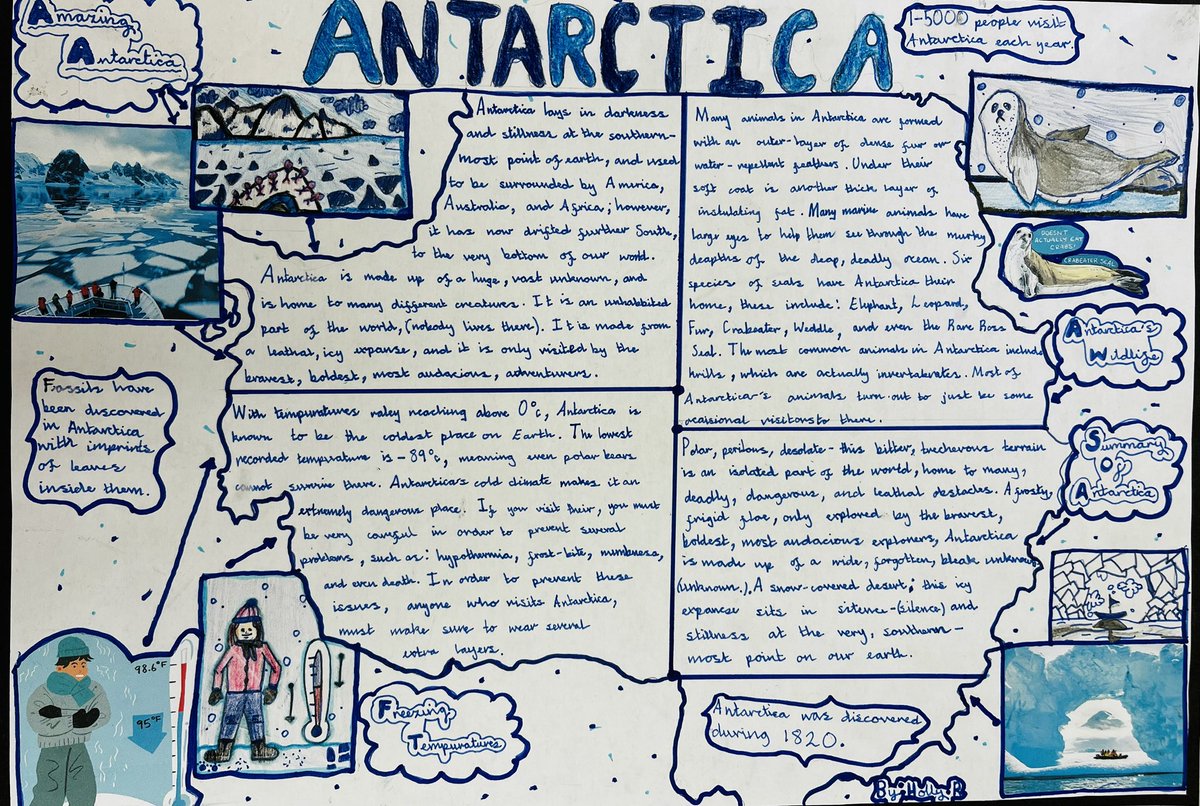 Amazing
Antarctica
ANTARCTICA
1-5000 people visit
Antarctica each year.
Antarctica lays in darkness
and stillness at the southern-
most point of earth, and used
to be surrounded by America,
Australia, and Africa; however,
it has now drifted further South,
to the very bottom of our world.
Antarctica is made up of a huge, vast unknown, and
is home to many different creatures. It is an unhabbited
part of the world, (nobody lives there). It is made from
a leathal, icy expanse, and it is only visited by the
bravest, boldest, most audacious, adventurers.
Many animals in Antarctica are formed
with an outer-layer of dense fur or
water-repellent feathers. Under their
soft coat is another thick layer of
instulating fat. Many marine animals have
large eyes to help them see through the murky
deapths of the deap, deadly ocean. Six
species of seals have Antarctica their
home, these include: Elephant, Leopard,
Fur, Crabeater, Weddle, and even the Rare Ross
Seal. The most common animals in Antarctica include
krills, which are actually invertaberates. Most of
Antarctica's animals turn out to just be some
ocasional visitors to there.
DOESN'T
ACTUALLY EAT
CRABS!
CRABEATER SEAL
Antarctica's
Wildlife
Fossils have
been discovered
in Antarctica
with imprints
of leaves
inside them.
With tempuratures raley reaching above 0°c, Antarctica is
known to be the coldest place on Earth. The lowest
recorded tempurature is -89°c, meaning even polar bears
cannot survive there. Antarctica's cold climate makes it an
extremely dangerous place. If you visit their, you must
be very careful in order to prevent several
problems, such as: hypotharmia, frost-bite, numbness,
and even death. In order to prevent these
issues, anyone who visits Antarctica,
must make sure to wear several
extra layers.
Polar, perilous, desolate- this bitter, trecherous terrain
is an isolated part of the world, home to many,
deadly, dangerous, and leathal obstacles. A frosty,
frigid floe, only explored by the bravest,
boldest, most audacious explorers, Antarctica
is made up of a wide, forgotten, bleak unknows
(unknown.). A snow-covered desert; this icy
expanse sits in sitence-(silence) and
stillness at the very, southern-
most point on our earth.
Summary
Of
Antarctica
98.6°F
95°F
Freezing
Tempuratures
Antarctica was discovered
during 1820.
By: Holly B